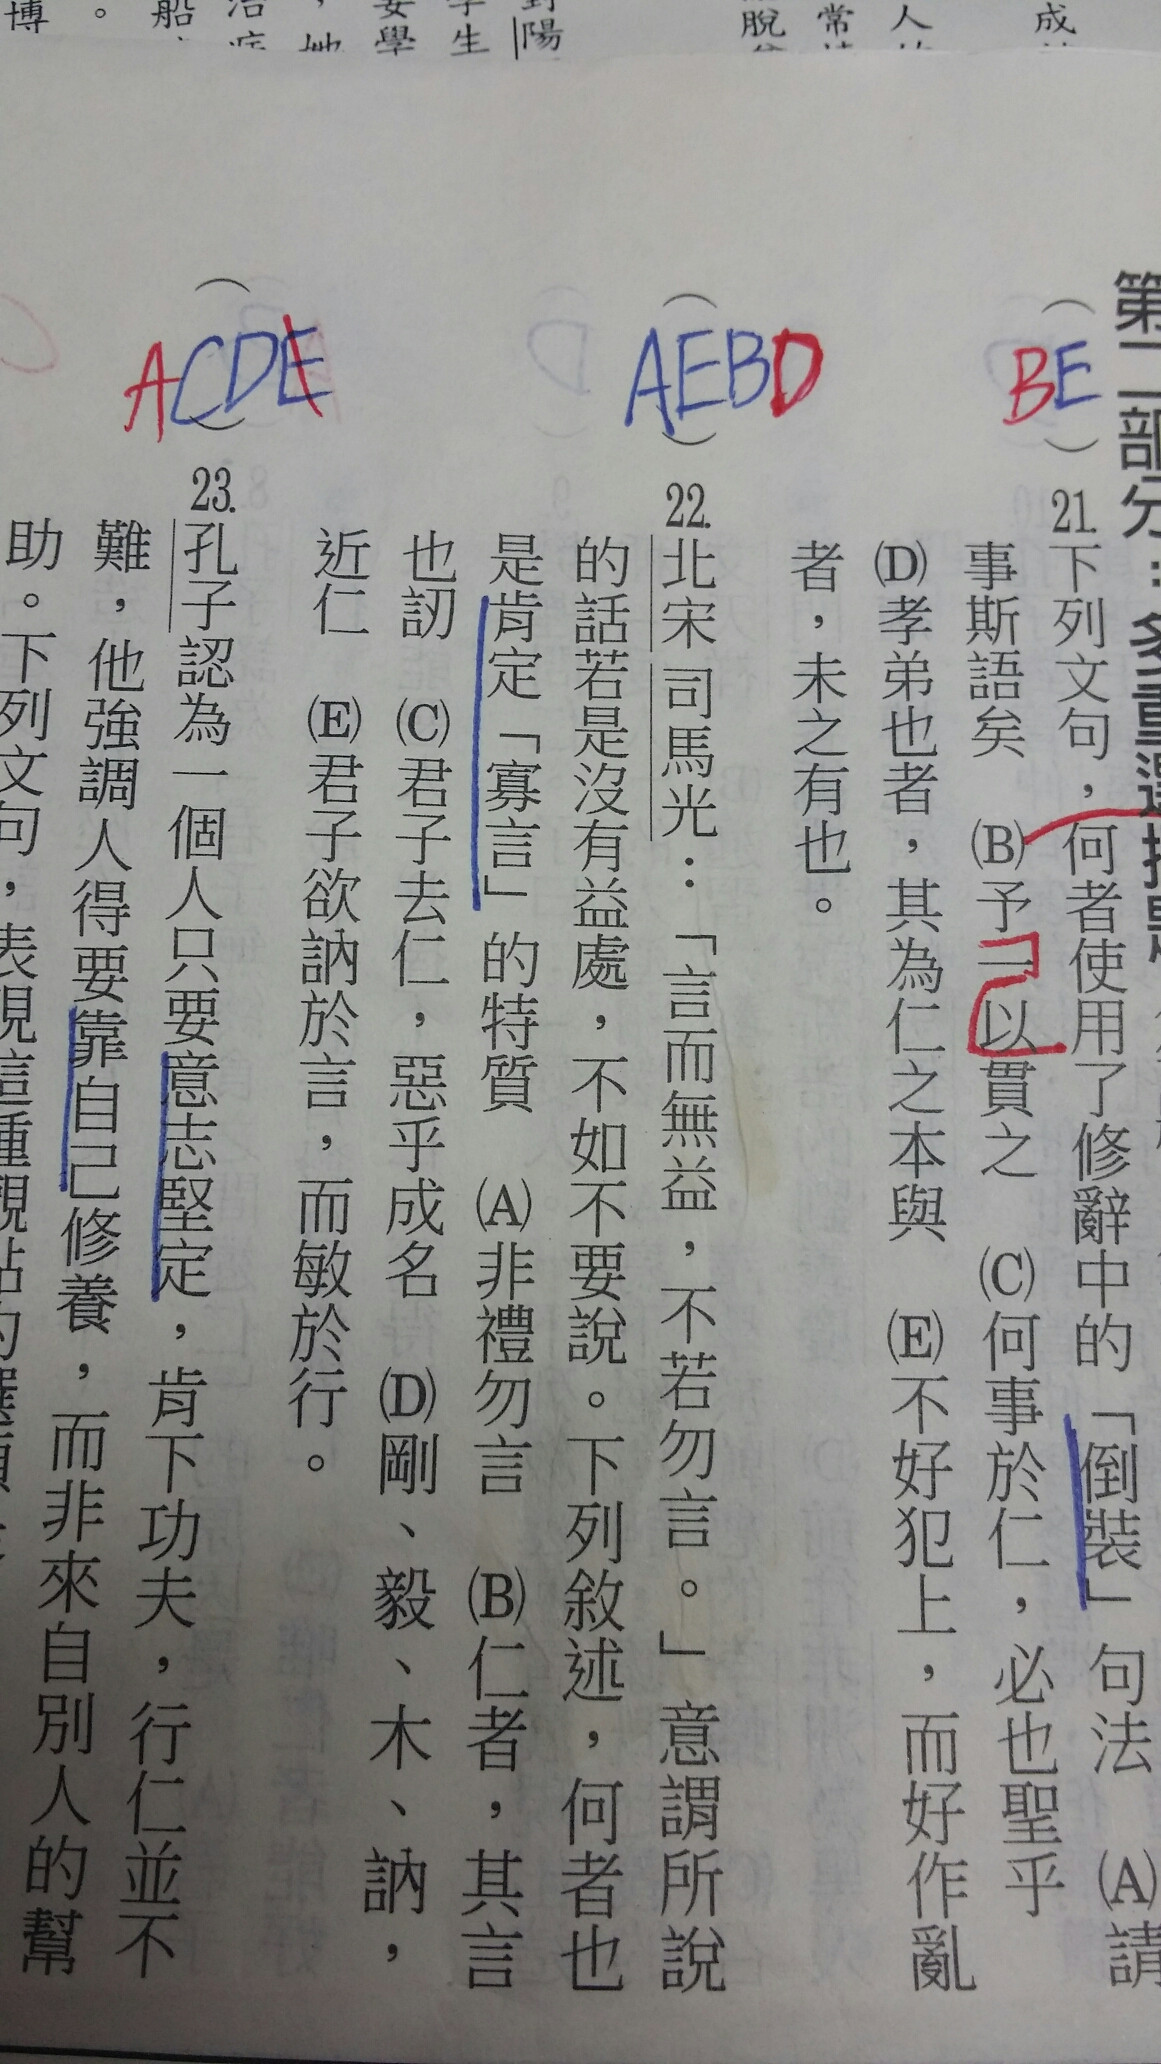 第二部分：多重選擇題
BE
21.下列文句，何者使用了修辭中的「倒裝」句法　(A)請
事斯語矣　(B)予一以貫之　(C)何事於仁，必也聖乎
(D)孝弟也者，其為仁之本與　(E)不好犯上，而好作亂
者，未之有也。
AEBD
22.北宋司馬光：「言而無益，不若勿言。」意謂所說
的話若是沒有益處，不如不要說。下列敘述，何者也
是肯定「寡言」的特質　(A)非禮勿言　(B)仁者，其言
也訒　(C)君子去仁，惡乎成名　(D)剛、毅、木、訥，
近仁　(E)君子欲訥於言，而敏於行。
ACDE
23.孔子認為一個人只要意志堅定，肯下功夫，行仁並不
難，他強調人得要靠自己修養，而非來自別人的幫
助。下列文句，表現這種觀點的選項
成
人
常
脫
對陽
學生
要學
，她
治
船
博。